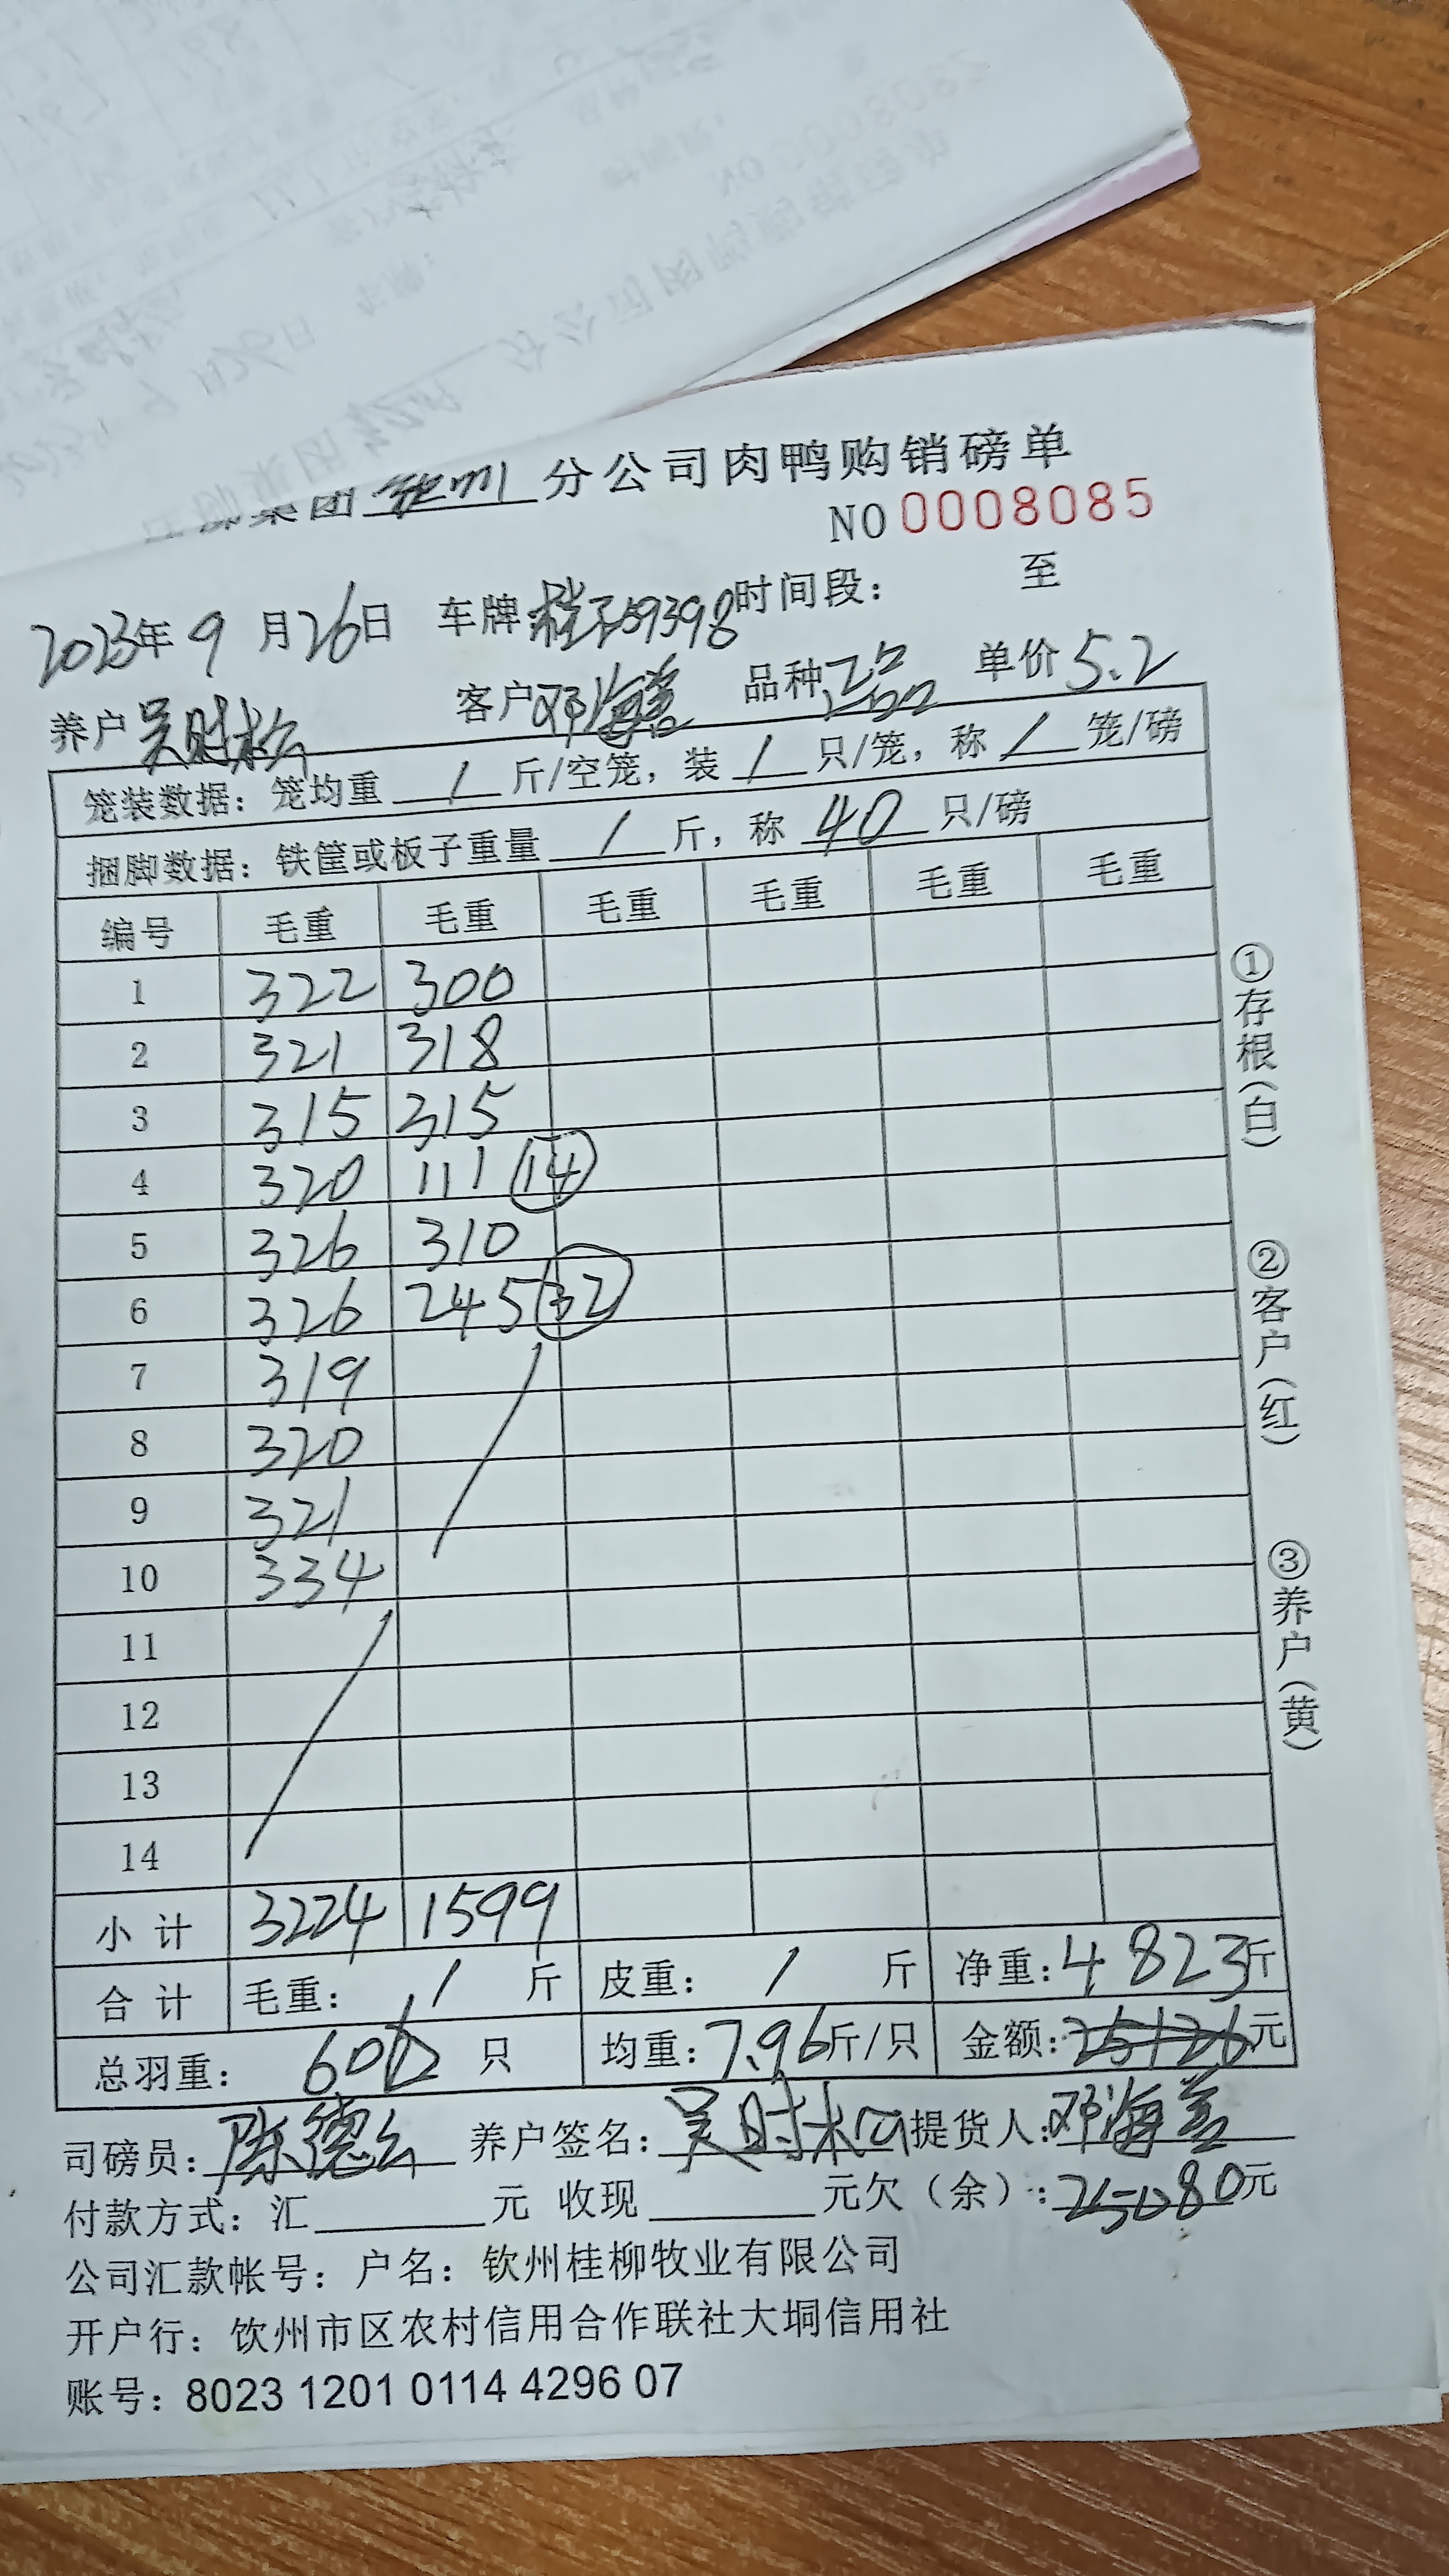 集团 钦州 分公司肉鸭购销磅单
NO 0008085
2023年 9 月 26日 车牌: 59398 时间段: 至
养户 吴时松 客户 邓海益 品种 二品 单价 5.2
笼装数据: 笼均重 / 斤/空笼, 装 / 只/笼, 称 / 笼/磅
捆脚数据: 铁筐或板子重量 / 斤, 称 40 只/磅
编号 毛重 毛重 毛重 毛重 毛重 毛重
1 322 300
2 321 318
3 315 315
4 320 111 14
5 326 310
6 326 245 32
7 319
8 320
9 321
10 334
11
12
13
14
小 计 3224 1599
合 计 毛重: / 斤 皮重: / 斤 净重: 4823斤
总羽重: 606 只 均重: 7.96斤/只 金额: 25126元
司磅员: 陈德 养户签名: 吴时松 提货人: 邓海益
付款方式: 汇 元 收现 元欠（余）: 25080元
公司汇款帐号: 户名: 钦州桂柳牧业有限公司
开户行: 钦州市区农村信用合作联社大垌信用社
账号: 8023 1201 0114 4296 07
①存根(白)
②客户(红)
③养户(黄)